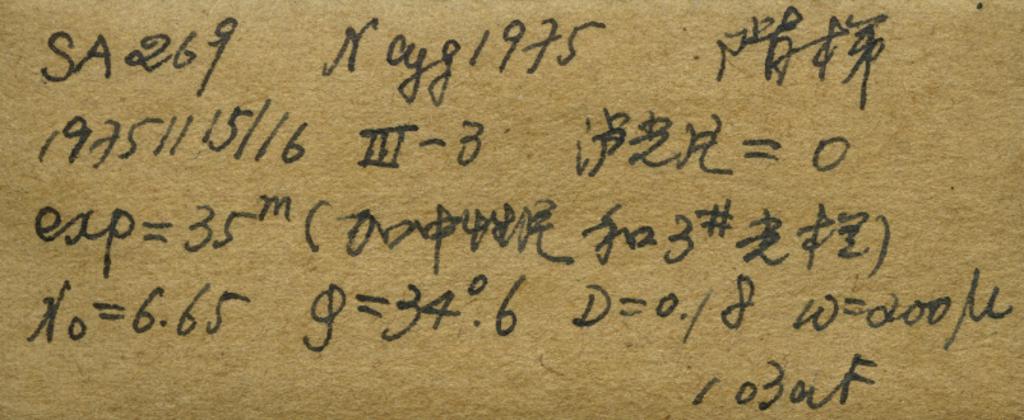 SA269 N Cyg 1975 阶梯
1975 11 15/16 III-3 滤光片=0
exp=35m (加中性尼和3#光栏)
X0=6.65 φ=34°.6 D=0.18 W=200μ
103aF